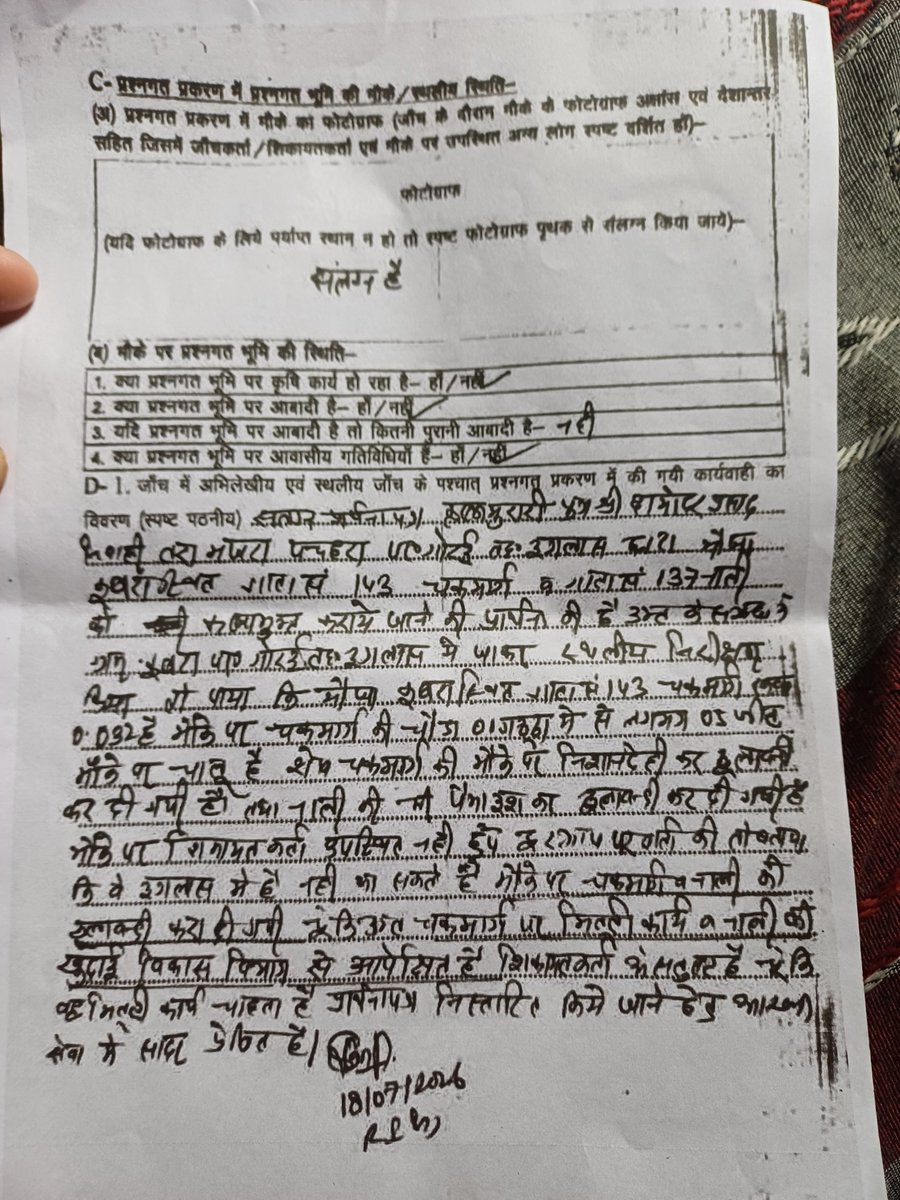 C- प्रश्नगत प्रकरण में प्रश्नगत भूमि की मौके/स्थलीय स्थिति-
(अ) प्रश्नगत प्रकरण में मौके का फोटोग्राफ (जाँच के दौरान मौके के फोटोग्राफ अक्षांस एवं देशान्तर
सहित जिसमें जाँचकर्ता/शिकायतकर्ता एवं मौके पर उपस्थित अन्य लोग स्पष्ट दर्शित हों)-
फोटोग्राफ
(यदि फोटोग्राफ के लिये पर्याप्त स्थान न हो तो स्पष्ट फोटोग्राफ पृथक से संलग्न किया जाये)-
संलग्न है
(ब) मौके पर प्रश्नगत भूमि की स्थिति-
1. क्या प्रश्नगत भूमि पर कृषि कार्य हो रहा है- हाँ/नहीं ✓
2. क्या प्रश्नगत भूमि पर आबादी है- हाँ/नहीं ✓
3. यदि प्रश्नगत भूमि पर आबादी है तो कितनी पुरानी आबादी है- नही
4. क्या प्रश्नगत भूमि पर आवासीय गतिविधियाँ हैं- हाँ/नहीं ✓
D- 1. जाँच में अभिलेखीय एवं स्थलीय जाँच के पश्चात् प्रश्नगत प्रकरण में की गयी कार्यवाही का
विवरण (स्पष्ट पठनीय) प्रार्थना पत्र पुत्र श्री
पचहरा गोरई तह० इगलास द्वारा मौजा
गाटा सं 143 चकमार्ग व गाटा सं 137 नाली
को कब्जामुक्त कराये जाने की प्रार्थना की है उक्त के सम्बन्ध में
ग्राम गोरई तह० इगलास में जाकर स्थलीय निरीक्षण
किया तो पाया कि मौजा स्थित गाटा सं 143 चकमार्ग
0.032 है मौके पर चकमार्ग की चौडा 01 गठ्ठा मे से लगभग 05 फीट
मौके पर चालू है शेष चकमार्ग की मौके पर निशानदेही कर डूलाबन्दी
कर दी गयी है। तथा नाली की भी पैमाइश कर डूलाबन्दी कर दी गयी है
मौके पर शिकायतकर्ता उपस्थित नही हुए दूरभाष पर वार्ता की तो बताया
कि वे इगलास मे है नही आ सकते है मौके पर चकमार्ग व नाली की
डूलाबन्दी करा दी गयी चूंकि उक्त चकमार्ग पर मिट्टी कार्य व नाली की
खुदाई विकास विभाग से आपेक्षित है शिकायतकर्ता चूंकि
वह मिट्टी कार्य चाहता है प्रार्थनापत्र निस्तारित किये जाने हेतु आख्या
सेवा मे सादर प्रेषित है।
18/07/2026